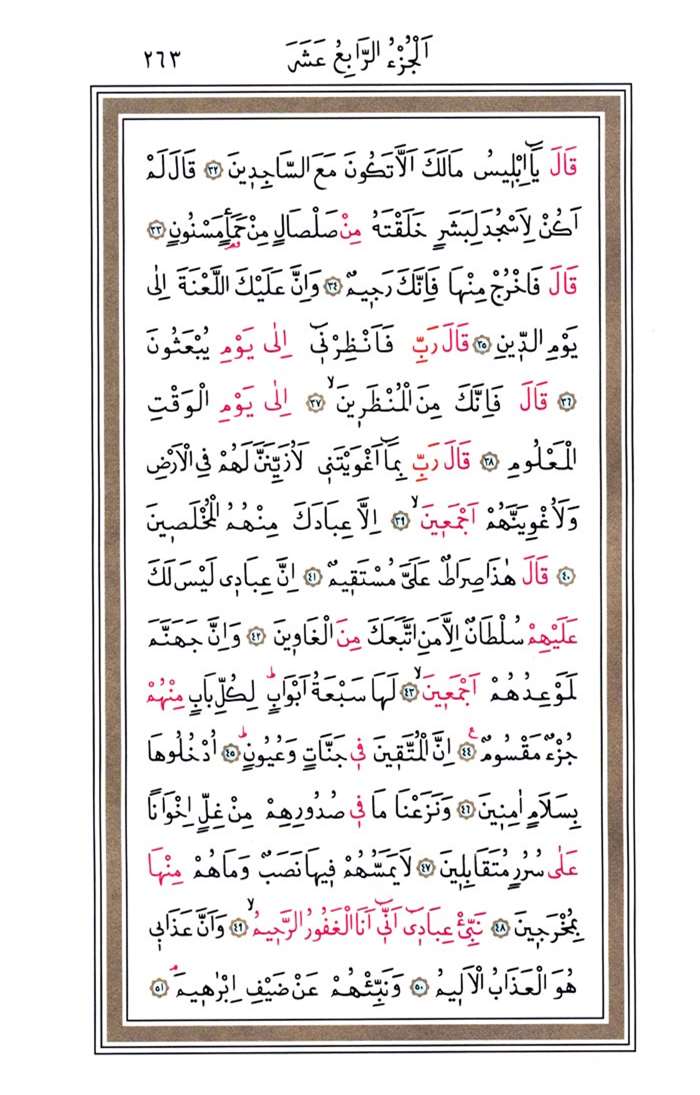 اَلْجُزْءُ الرَّابِعُ عَشَرَ ٢٦٣
قَالَ يَٓا اِبْلِيسُ مَالَكَ اَلَّا تَكُونَ مَعَ السَّاجِدِينَ ﴿٣٢﴾ قَالَ لَمْ
اَكُنْ لِاَسْجُدَ لِبَشَرٍ خَلَقْتَهُ مِنْ صَلْصَالٍ مِنْ حَمَأٍ مَسْنُونٍ ﴿٣٣﴾
قَالَ فَاخْرُجْ مِنْهَا فَاِنَّكَ رَجِيمٌ ﴿٣٤﴾ وَاِنَّ عَلَيْكَ اللَّعْنَةَ اِلٰى
يَوْمِ الدِّينِ ﴿٣٥﴾ قَالَ رَبِّ فَاَنْظِرْنِٓي اِلٰى يَوْمِ يُبْعَثُونَ
﴿٣٦﴾ قَالَ فَاِنَّكَ مِنَ الْمُنْظَرِينَۙ ﴿٣٧﴾ اِلٰى يَوْمِ الْوَقْتِ
الْمَعْلُومِ ﴿٣٨﴾ قَالَ رَبِّ بِمَٓا اَغْوَيْتَنِي لَاُزَيِّنَنَّ لَهُمْ فِي الْاَرْضِ
وَلَاُغْوِيَنَّهُمْ اَجْمَعِينَۙ ﴿٣٩﴾ اِلَّا عِبَادَكَ مِنْهُمُ الْمُخْلَصِينَ
﴿٤٠﴾ قَالَ هٰذَا صِرَاطٌ عَلَيَّ مُسْتَقِيمٌ ﴿٤١﴾ اِنَّ عِبَادِي لَيْسَ لَكَ
عَلَيْهِمْ سُلْطَانٌ اِلَّا مَنِ اتَّبَعَكَ مِنَ الْغَاوِينَ ﴿٤٢﴾ وَاِنَّ جَهَنَّمَ
لَمَوْعِدُهُمْ اَجْمَعِينَۙ ﴿٤٣﴾ لَهَا سَبْعَةُ اَبْوَابٍۜ لِكُلِّ بَابٍ مِنْهُمْ
جُزْءٌ مَقْسُومٌ۟ ﴿٤٤﴾ اِنَّ الْمُتَّقِينَ فِي جَنَّاتٍ وَعُيُونٍۜ ﴿٤٥﴾ اُدْخُلُوهَا
بِسَلَامٍ اٰمِنِينَ ﴿٤٦﴾ وَنَزَعْنَا مَا فِي صُدُورِهِمْ مِنْ غِلٍّ اِخْوَانًا
عَلٰى سُرُرٍ مُتَقَابِلِينَ ﴿٤٧﴾ لَا يَمَسُّهُمْ فِيهَا نَصَبٌ وَمَا هُمْ مِنْهَا
بِمُخْرَجِينَ ﴿٤٨﴾ نَبِّئْ عِبَادِٓي اَنِّٓي اَنَا الْغَفُورُ الرَّحِيمُۙ ﴿٤٩﴾ وَاَنَّ عَذَابِي
هُوَ الْعَذَابُ الْاَلِيمُ ﴿٥٠﴾ وَنَبِّئْهُمْ عَنْ ضَيْفِ اِبْرٰهِيمَۢ ﴿٥١﴾